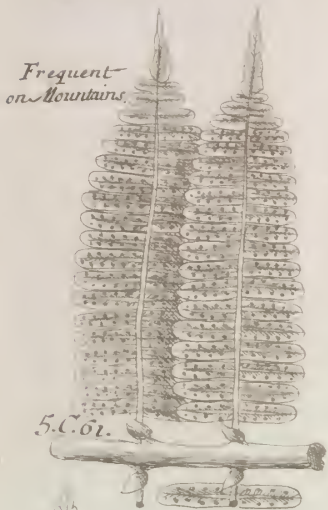 Frequent
on Mountains.
5.C.61.